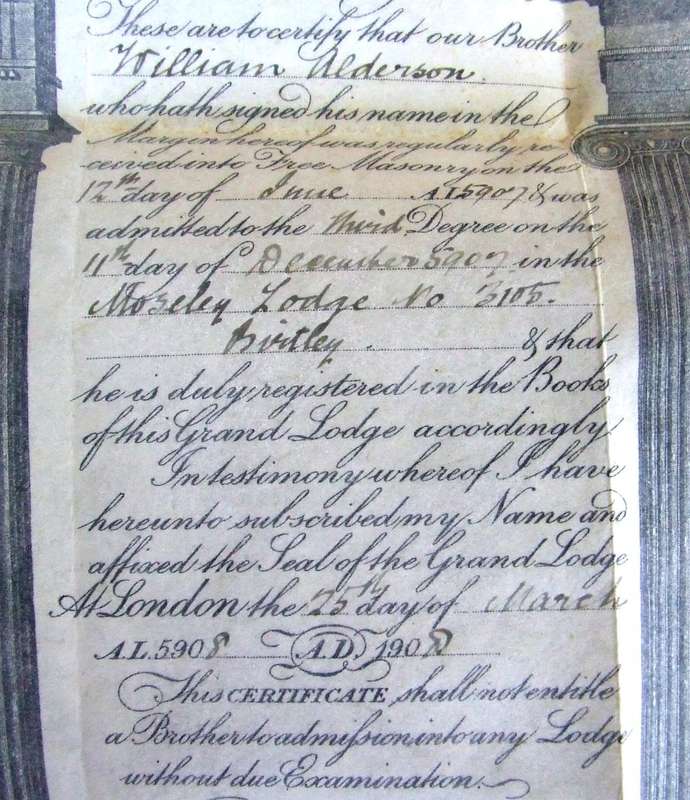 These are to certify that our Brother
William Alderson.
who hath signed his name in the
Margin hereof was regularly re
ceived into Free Masonry on the
12th day of June A.L.5907 & was
admitted to the Third Degree on the
11th day of December 5907 in the
Mozeley Lodge No 3105.
Birtley. & that
he is duly registered in the Books
of this Grand Lodge accordingly
In testimony whereof I have
hereunto subscribed my Name and
affixed the Seal of the Grand Lodge
At London the 25th day of March
A.L.5908 A.D. 1908
This CERTIFICATE shall not entitle
a Brother to admission into any Lodge
without due Examination.